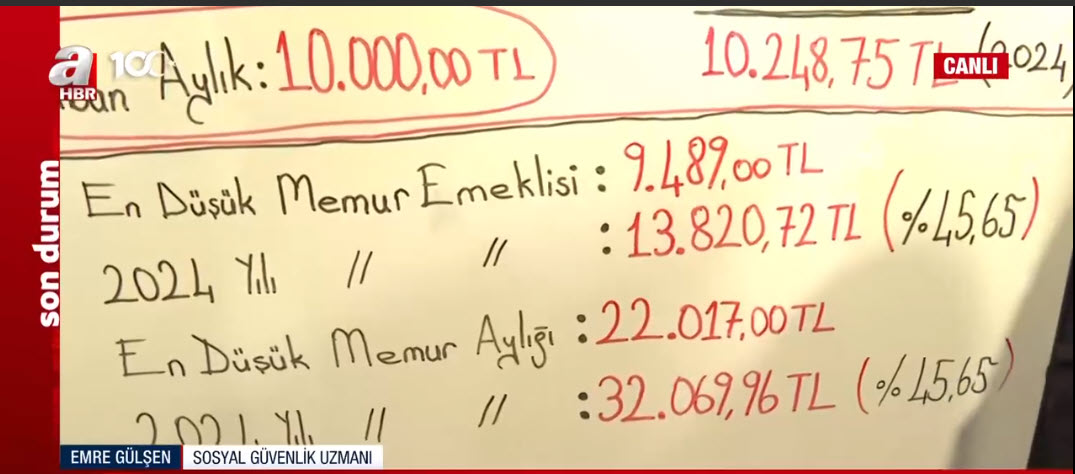 a
HBR
100
Aylık: 10.000,00 TL
10.248,75 TL (2024)
CANLI
son durum
En Düşük Memur Emeklisi : 9.489,00 TL
2024 Yılı " " : 13.820,72 TL (%45,65)
En Düşük Memur Aylığı : 22.017,00 TL
2024 Yılı " " : 32.069,96 TL (%45,65)
EMRE GÜLŞEN SOSYAL GÜVENLİK UZMANI